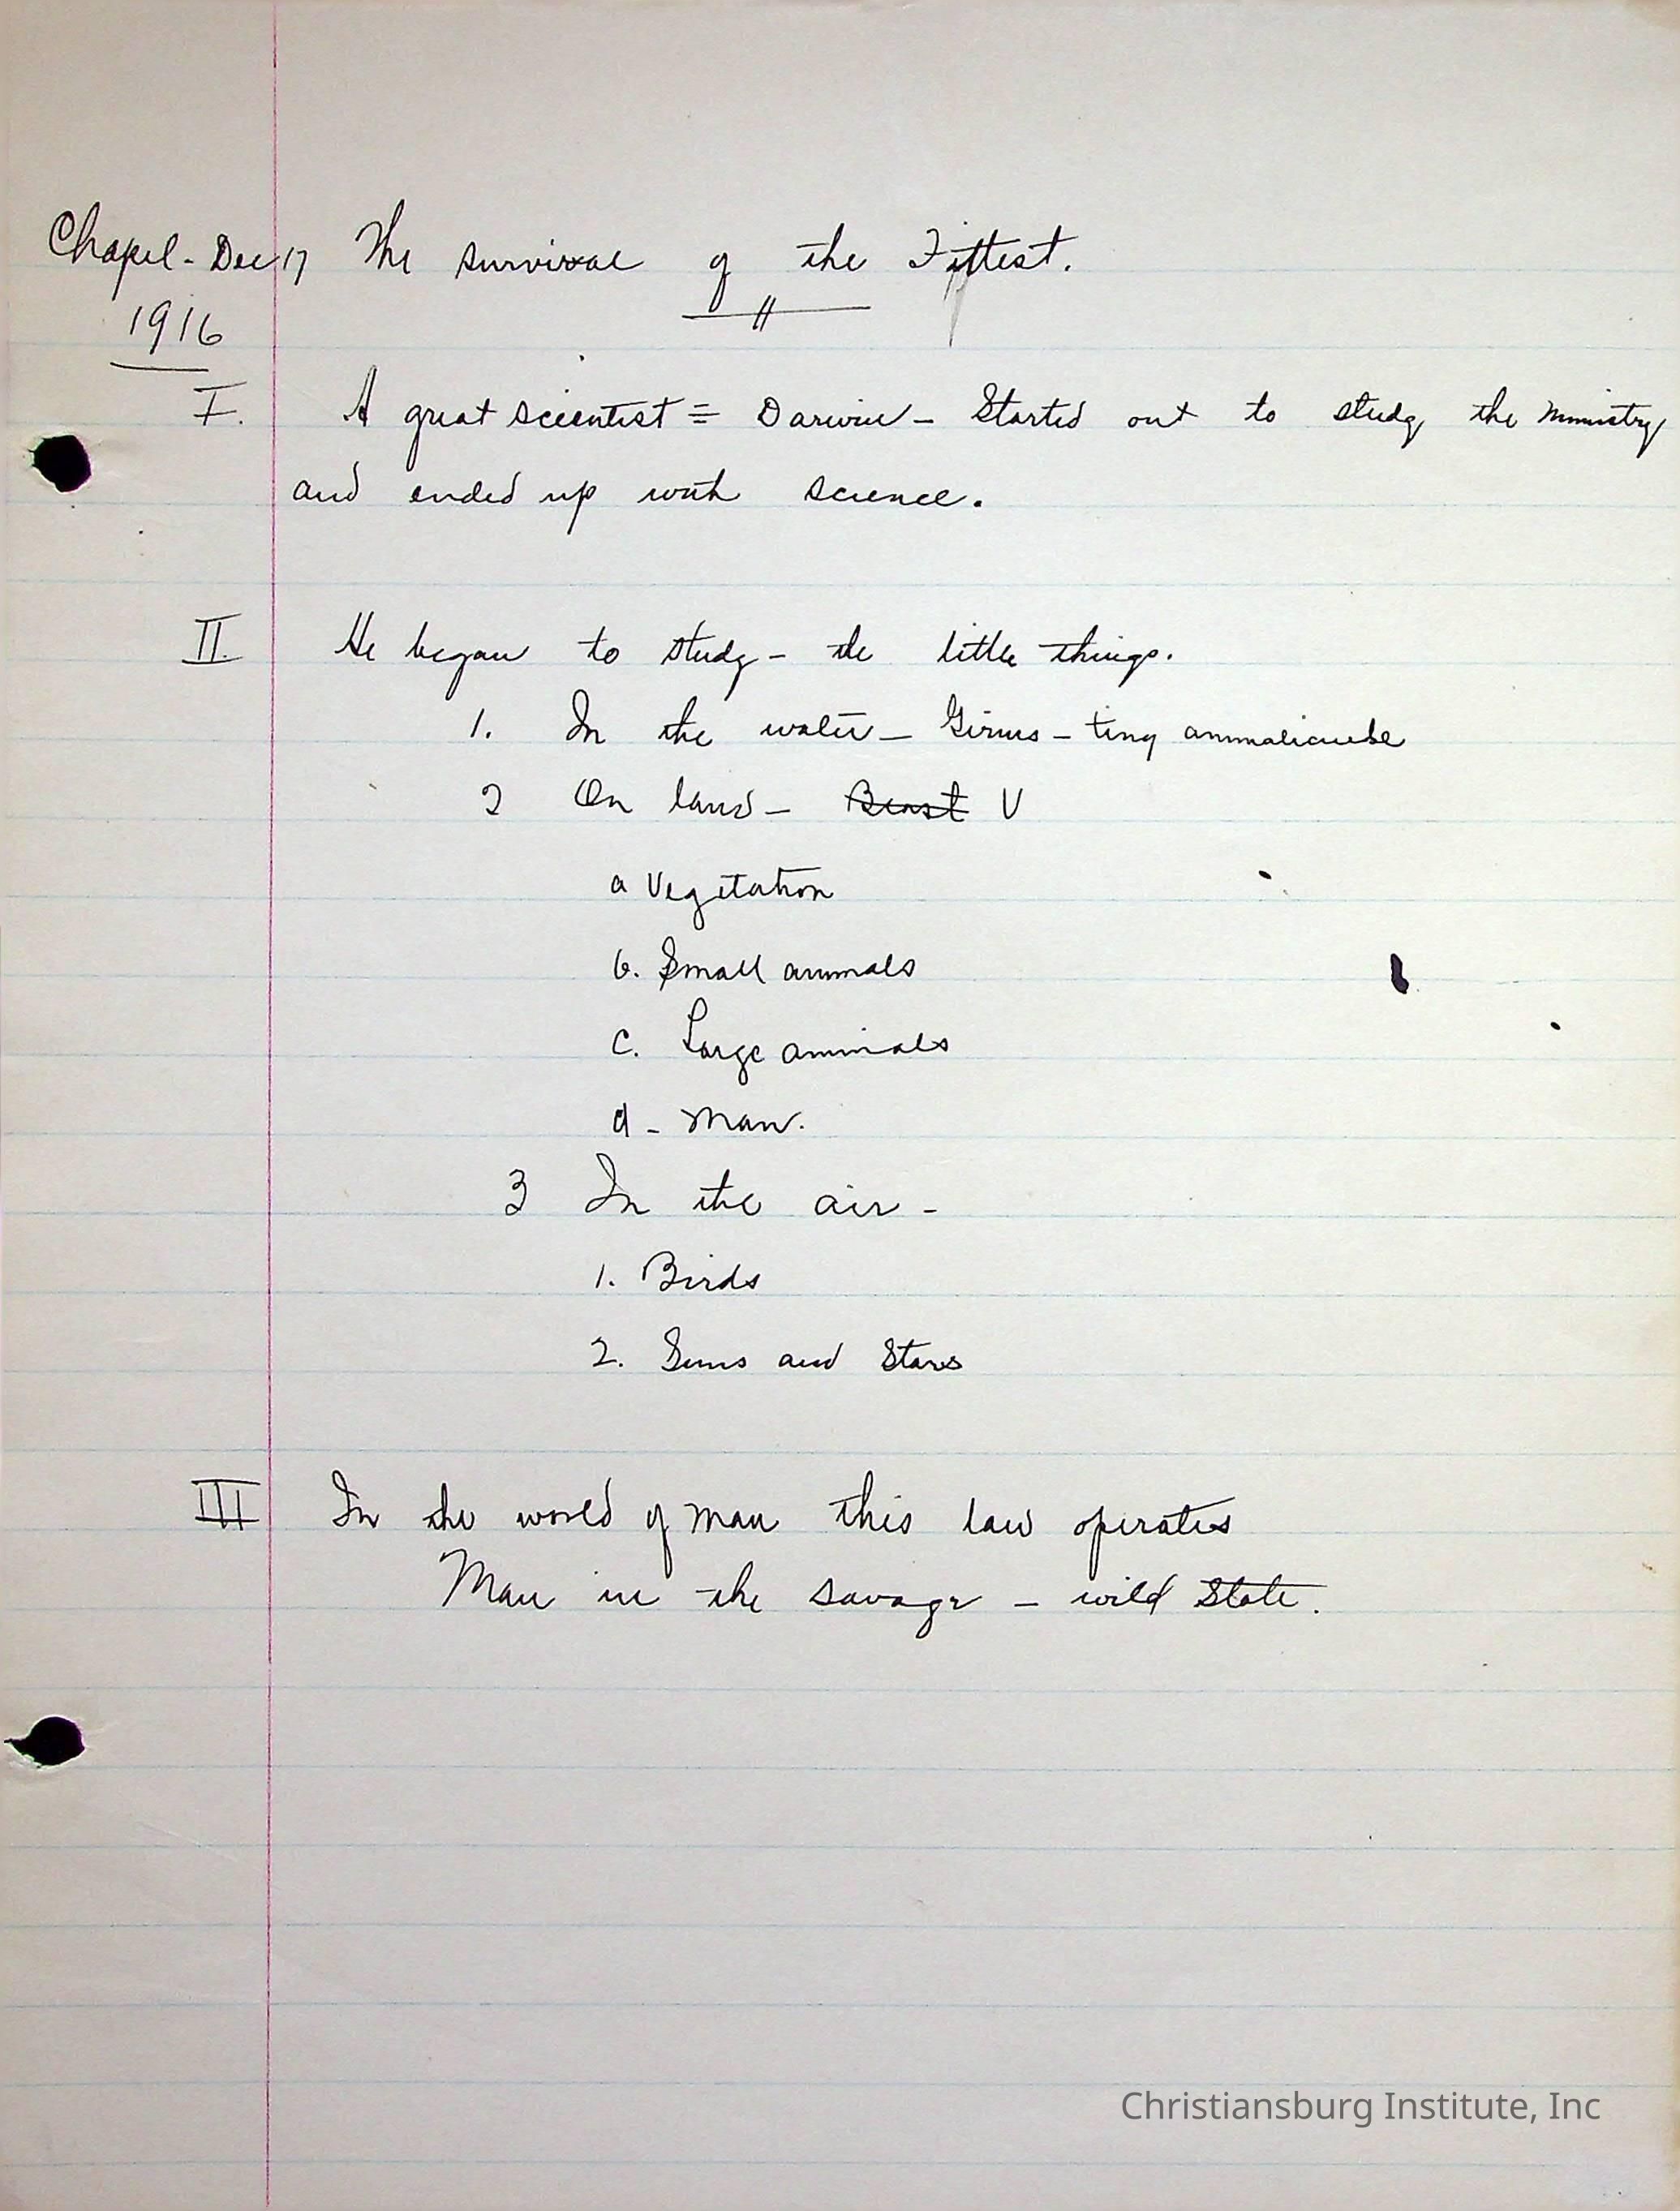 Chapel - Dec 17 The survival of the Fittest.
1916
I. A great scientist = Darwin - Started out to study the ministry
and ended up with science.
II. He began to study - the little things.
1. In the water - Germs - tiny
2 On land - Beast V
a Vegetation
b. Small animals
c. Large animals
d - Man.
3 In the air -
1. Birds
2. Suns and Stars
III In the world of man this law operates
Man in the savage - wild State.
Christiansburg Institute, Inc